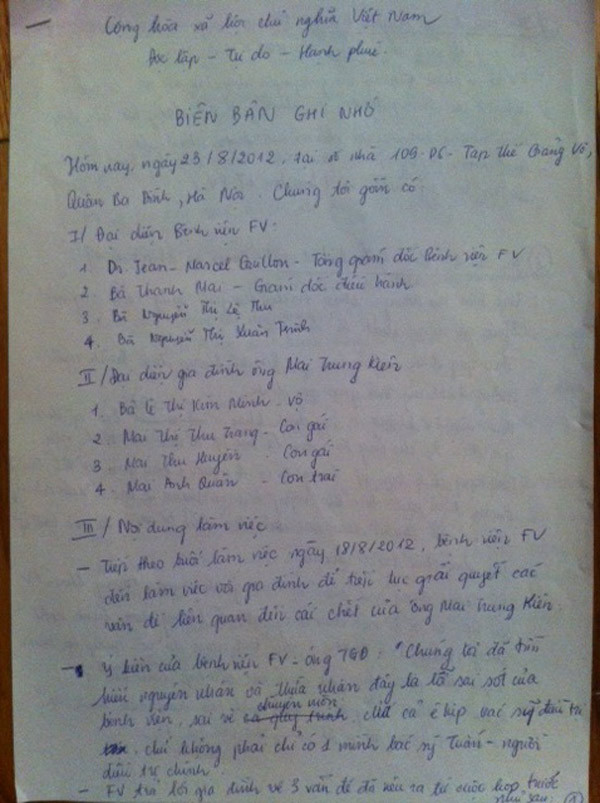 Cộng hòa xã hội chủ nghĩa Việt Nam
Độc lập - Tự do - Hạnh phúc
BIÊN BẢN GHI NHỚ
Hôm nay, ngày 23/8/2012, tại số nhà 109-D6- Tập thể Giảng Võ,
Quận Ba Đình, Hà Nội. Chúng tôi gồm có:
I/ Đại diện Bệnh viện FV:
1 Dr. Jean-Marcel Guillon - Tổng giám đốc bệnh viện FV
2 Bà Thanh Mai - Giám đốc điều hành
3. Bà Nguyễn Thị Lệ Thu
4. Bà Nguyễn Thị Xuân Trinh
II/ Đại diện gia đình ông Mai Trung Kiên
1. Bà Lê Thị Kim Minh - Vợ
2 Mai Thị Thu Trang - Con gái
3 Mai Thu Huyền - Con gái
4. Mai Anh Quân - Con trai
III/ Nội dung làm việc
- Tiếp theo buổi làm việc ngày 18/8/2012, bệnh viện FV
đến làm việc với gia đình để tiếp tục giải quyết các
vấn đề liên quan đến cái chết của ông Mai Trung Kiên.
- Ý kiến của bệnh viện FV - ông TGĐ: "Chúng tôi đã tìm
hiểu nguyên nhân và thừa nhận đây là lỗi sai sót của
bệnh viện, sai về chuyên môn của cả ê kíp bác sỹ điều trị
chứ không phải chỉ có 1 mình bác sỹ Tuấn - người
điều trị chính.
- FV trả lời gia đình về 3 vấn đề đã nêu ra từ cuộc họp trước
như sau: ①